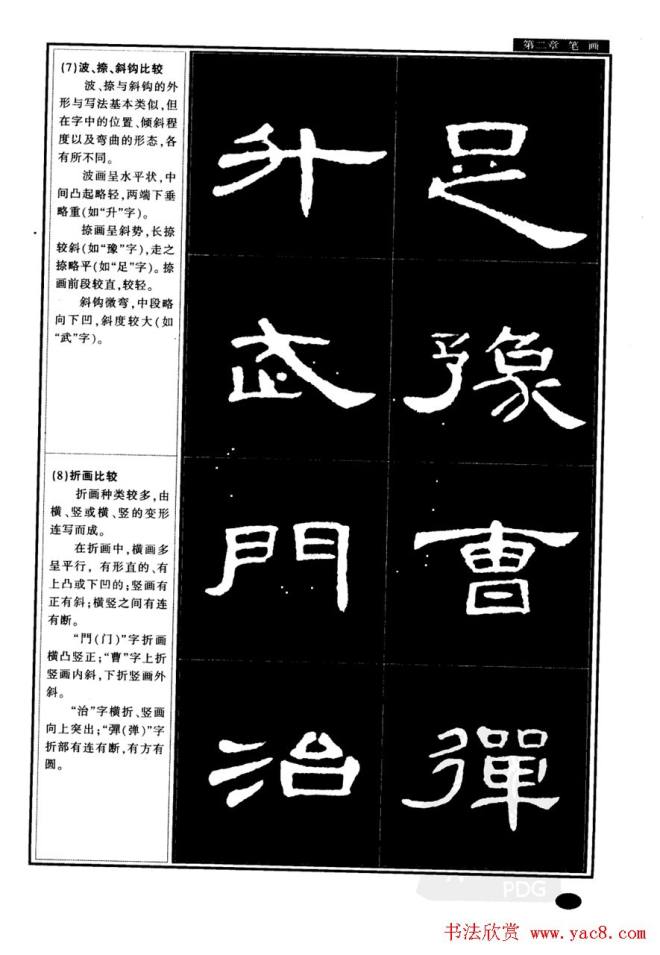 第二章 笔 画
(7)波、捺、斜钩比较
波、捺与斜钩的外
形与写法基本类似,但
在字中的位置、倾斜程
度以及弯曲的形态,各
有所不同。
波画呈水平状,中
间凸起略轻,两端下垂
略重(如“升”字)。
捺画呈斜势,长捺
较斜(如“豫”字),走之
捺略平(如“足”字)。捺
画前段较直,较轻。
斜钩微弯,中段略
向下凹,斜度较大(如
“武”字)。
升 足
武 豫
(8)折画比较
折画种类较多,由
横、竖或横、竖的变形
连写而成。
在折画中,横画多
呈平行,有形直的、有
上凸或下凹的;竖画有
正有斜;横竖之间有连
有断。
“門(门)”字折画
横凸竖正;“曹”字上折
竖画内斜,下折竖画外
斜。
“治”字横折、竖画
向上突出;“彈(弹)”字
折部有连有断,有方有
圆。
門 曹
治 彈
PDG
书法欣赏 www.yac8.com